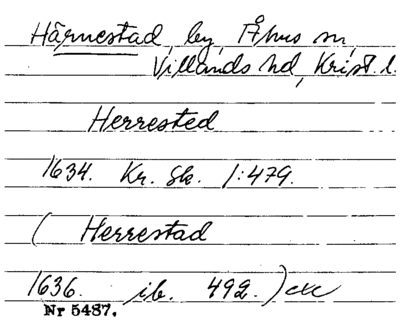 Härnestad, by, Åhus sn,
Villands hd, Krist. l.
Herrested
1634. Kr. Sk. 1:479.
( Herrestad
1636. ib. 492.) etc
Nr 5487.